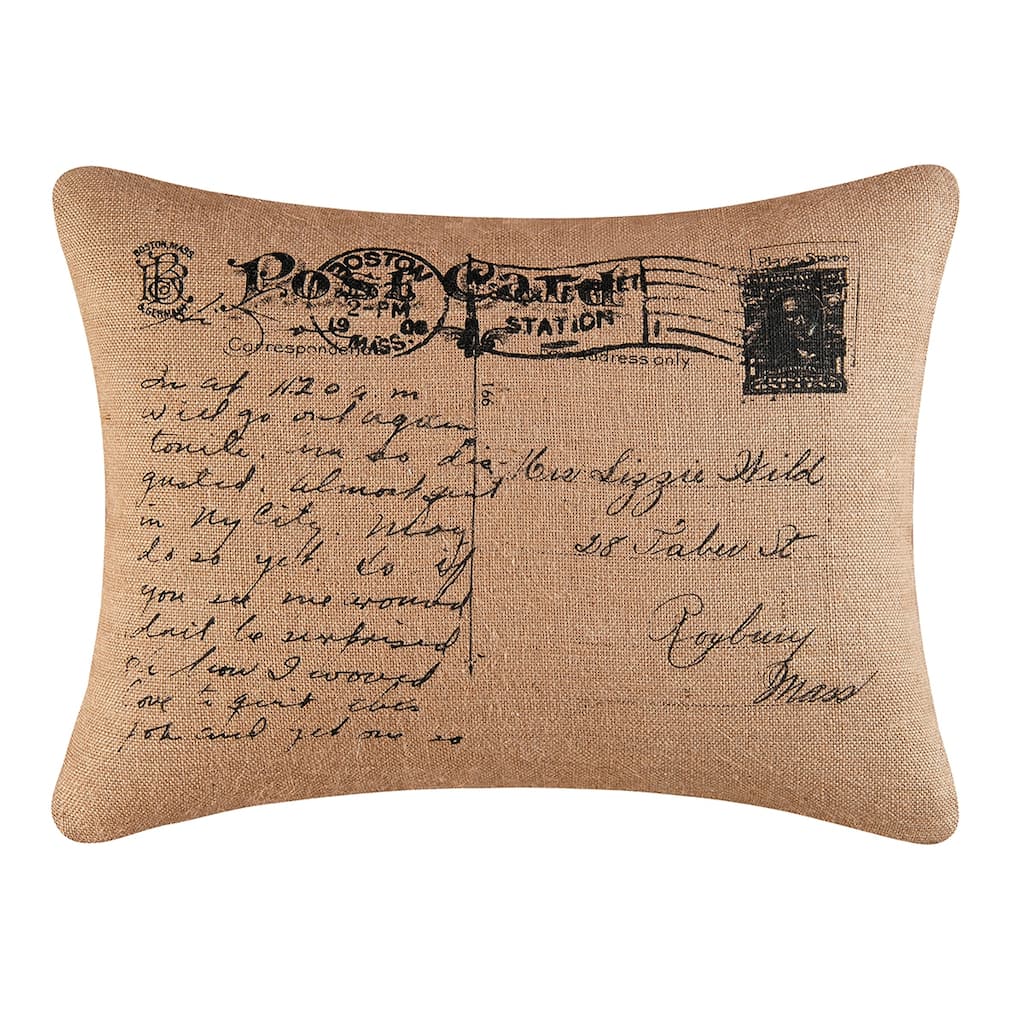 BOSTON, MASS
B Co
& GERMANY
Post Card
BOSTON
2-PM
19 06
MASS.
STATION
1
Place Stamp
Correspondence
address only
166
In at 11.20 a.m
will go out again
tonite. im so dis-
gusted. Almost quit
in Ny City. May
do so yet. So if
you see me around
dont be surprised
I wood
love to quit this
job and get one so
Mrs Lizzie Wild
28 Taber St
Roxbury
Mass